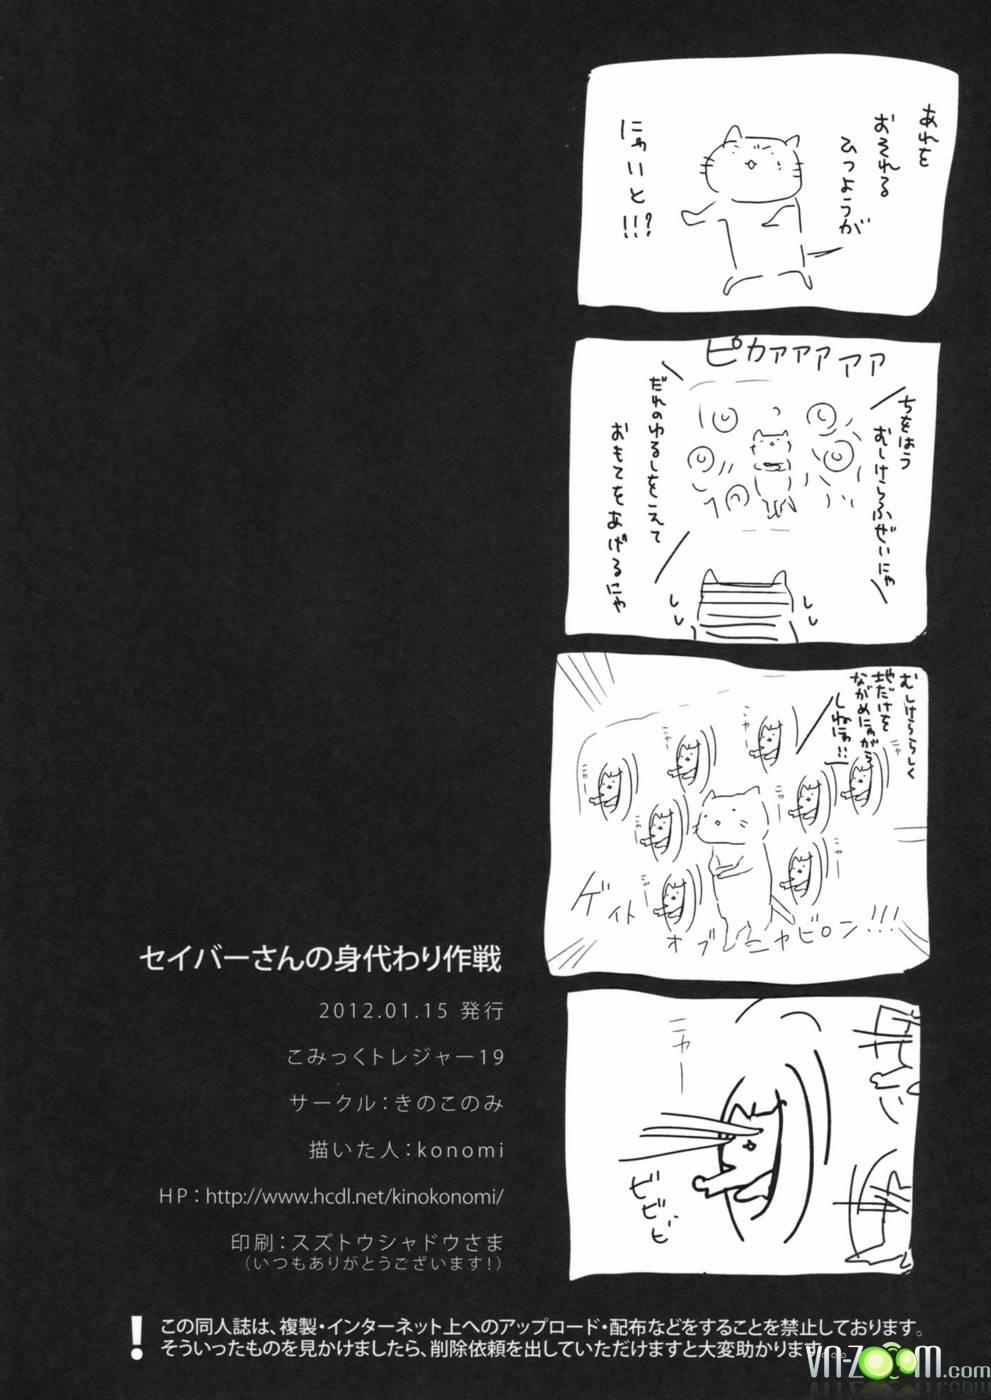 あれを
おそれる
ひつようが
にゃいと!!!?
ピカァァァァァ
ちをはう
むしけらふぜいにゃ
だれのゆるしをこえて
おもてをあげるにゃ
むしけららしく
地だけを
ながめにゃがら
しねにゃ!!
ニャー
ニャー
ニャー
ニャー
ニャー
ニャー
ゲイト
オブ
ニャビロン!!!
ニャー
ビビビ
セイバーさんの身代わり作戦
2012.01.15 発行
こみっくトレジャー19
サークル:きのこのみ
描いた人:konomi
HP:http://www.hcdl.net/kinokonomi/
印刷:スズトウシャドウさま
(いつもありがとうございます!)
!
この同人誌は、複製・インターネット上へのアップロード・配布などをすることを禁止しております。
そういったものを見かけましたら、削除依頼を出していただけますと大変助かります。
vn-zoom.com